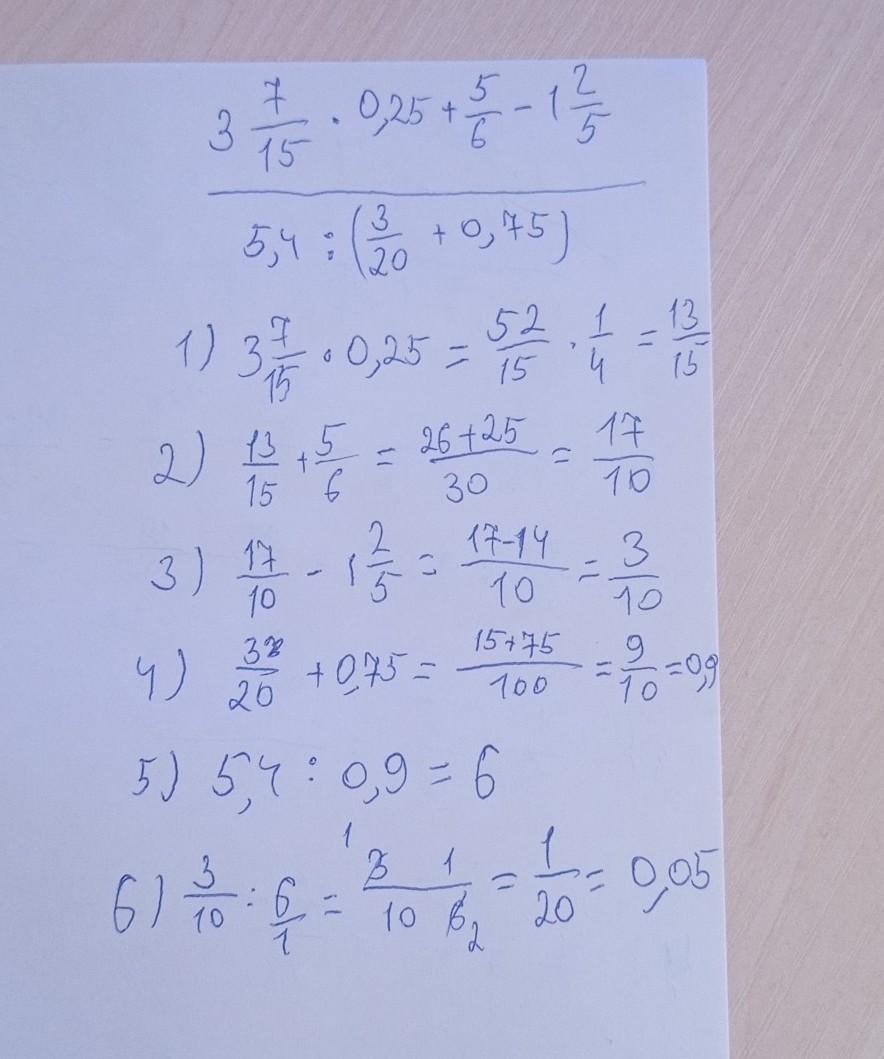 3 7/15 · 0,25 + 5/6 - 1 2/5
5,4 : (3/20 + 0,75)
1) 3 7/15 · 0,25 = 52/15 · 1/4 = 13/15
2) 13/15 + 5/6 = 26+25/30 = 17/10
3) 17/10 - 1 2/5 = 17-14/10 = 3/10
4) 3/20 + 0,75 = 15+75/100 = 9/10 = 0,9
5) 5,4 : 0,9 = 6
6) 3/10 : 6/1 = 3 1/10 6 = 1/20 = 0,05